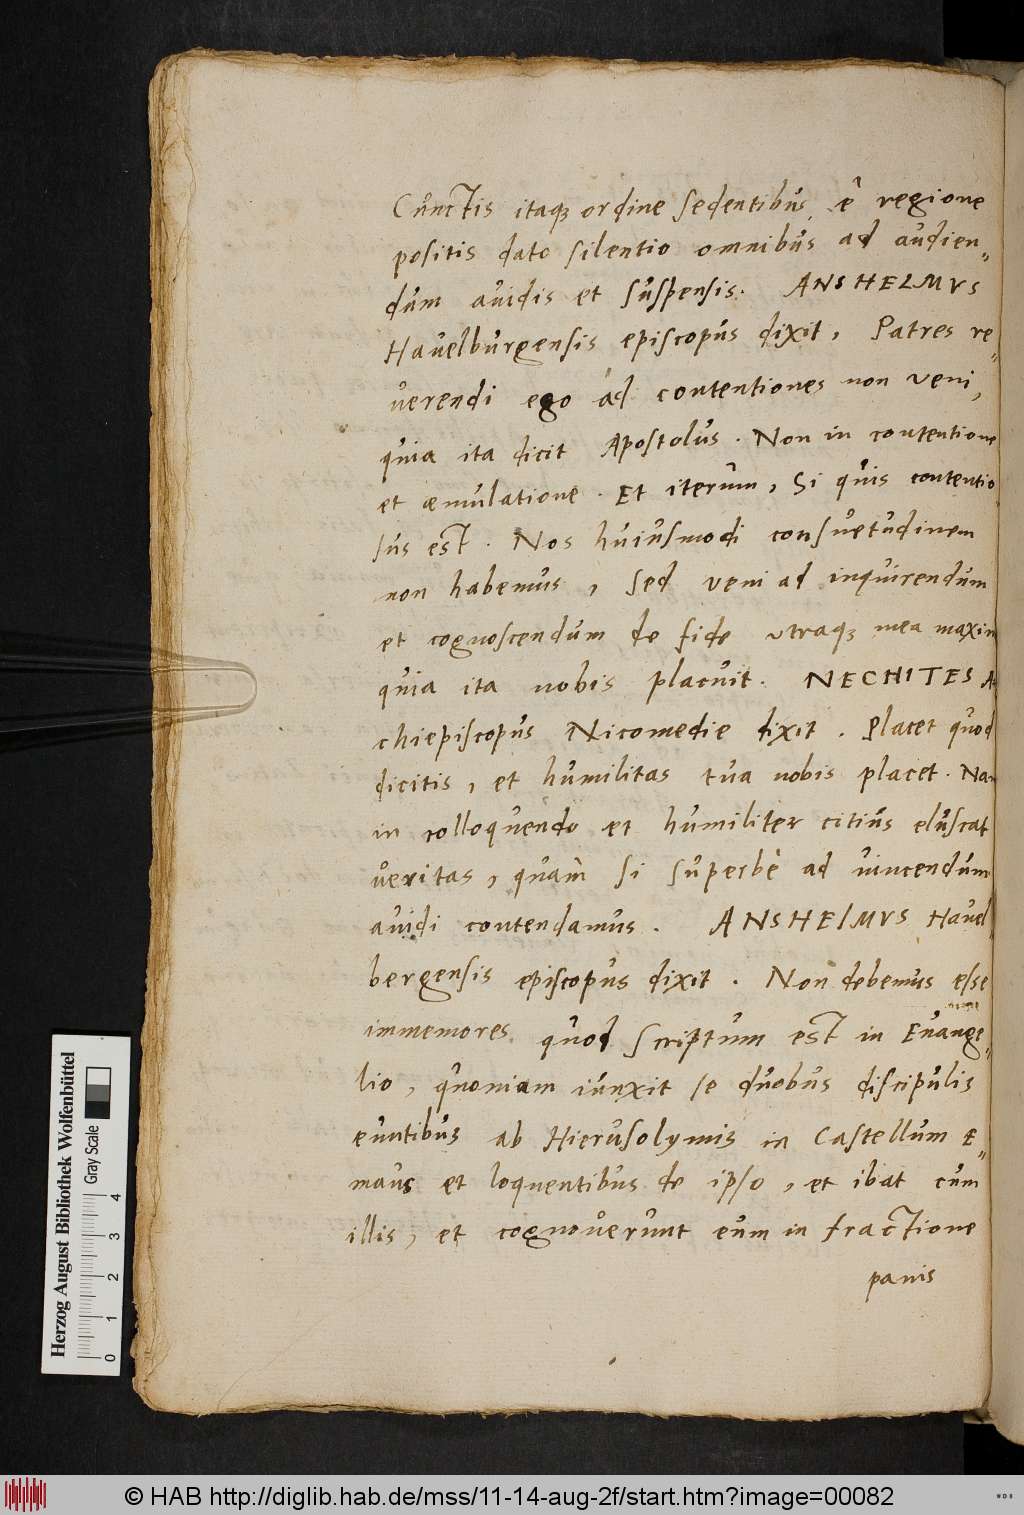 Cunctis itaqꝫ ordine sedentibus, è regione
positis dato silentio omnibus ad audien=
dum auidis et suspensis. ANSHELMVS
Hauelburgensis episcopus dixit, Patres re=
verendi ego ad contentiones non veni,
quia ita dicit Apostolus. Non in contentione
et æmulatione. Et iterum, Si quis contentio
sus est. Nos huiusmodi consuetudinem
non habemus, sed veni ad inquirendum
et cognoscendum de fide vtraqꝫ mea maxim
quia ita nobis placuit. NECHITES A
chiepiscopus Nicomedie dixit. Placet quod
dicitis, et humilitas tua nobis placet. Nam
in colloquendo et humiliter citius eluscat
veritas, quàm si superbè ad vincendum
auidi contendamus. ANSHElMVS Hauel
bergensis episcopus dixit. Non debemus esse
immemores quod scriptum est in Euange=
lio, quoniam iunxit se duobus discipulis
euntibus ab Hierusolymis in Castellum E=
maus et loquentibus de ipso, et ibat cum
illis, et cognouerunt eum in fractione
panis
Herzog August Bibliothek Wolfenbüttel
Gray Scale
0 1 2 3 4
© HAB http://diglib.hab.de/mss/11-14-aug-2f/start.htm?image=00082